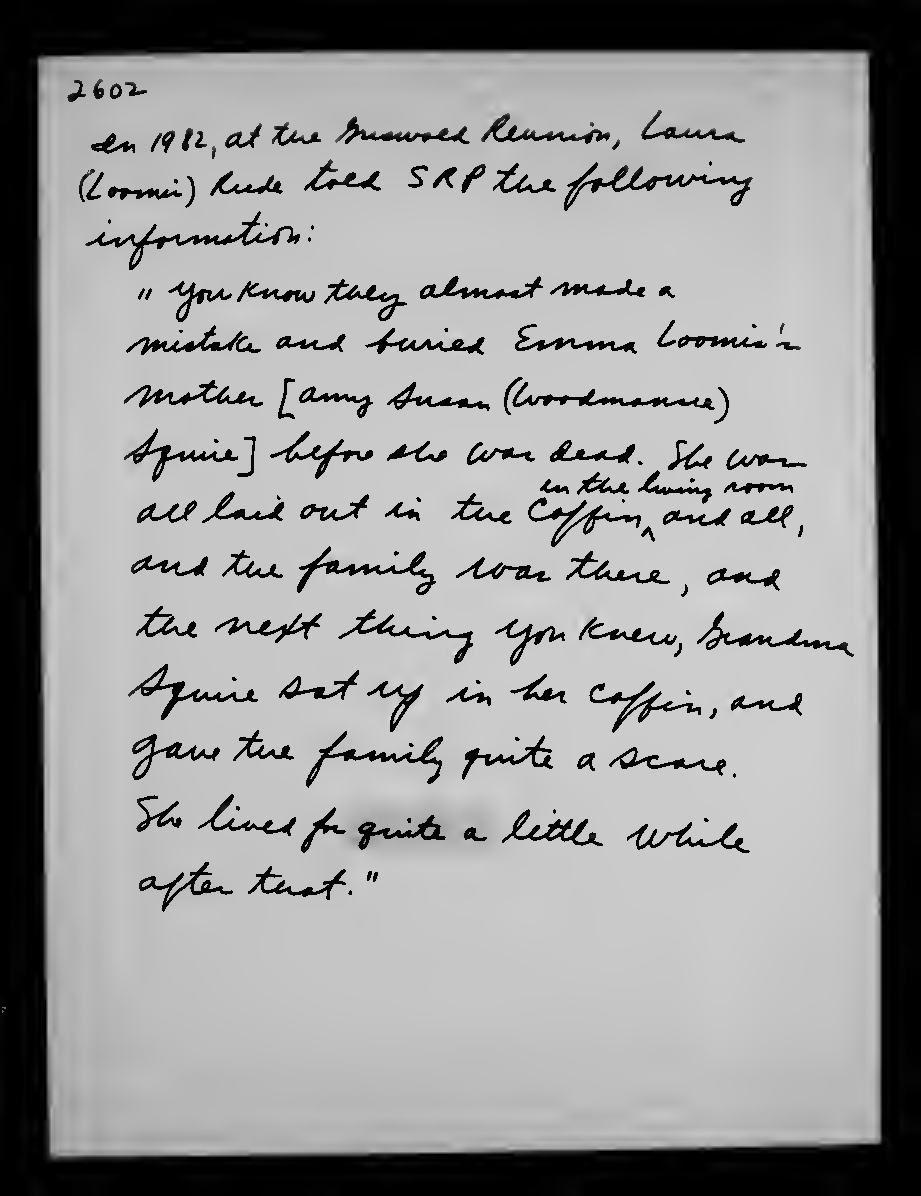 2602
In 1982, at the Griswold Reunion, Laura
(Loomis) Rude told SRP the following
information:
" You know they almost made a
mistake and buried Emma Loomis's
mother [Amy Susan (Woodmansee)
Squire] before she was dead. She was
in the living room
all laid out in the coffin ^ and all,
and the family was there, and
the next thing you knew, Grandma
Squire sat up in her coffin, and
gave the family quite a scare.
She lived for quite a little while
after that."